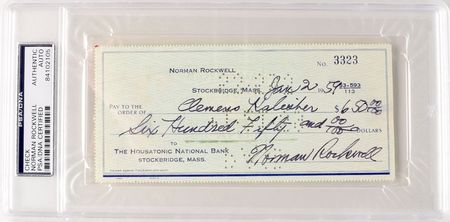 PSA/DNA
CHECK
NORMAN ROCKWELL
PSA/DNA CERTIFIED
AUTHENTIC
AUTO
84102105
No. 3323
NORMAN ROCKWELL
STOCKBRIDGE, MASS. Jan 2 1959 53-593
113
PAY TO THE
ORDER OF Clemens Kalischer $650 00/100
Six Hundred Fifty and 00/100 DOLLARS
TO THE HOUSATONIC NATIONAL BANK
STOCKBRIDGE, MASS.
Norman Rockwell